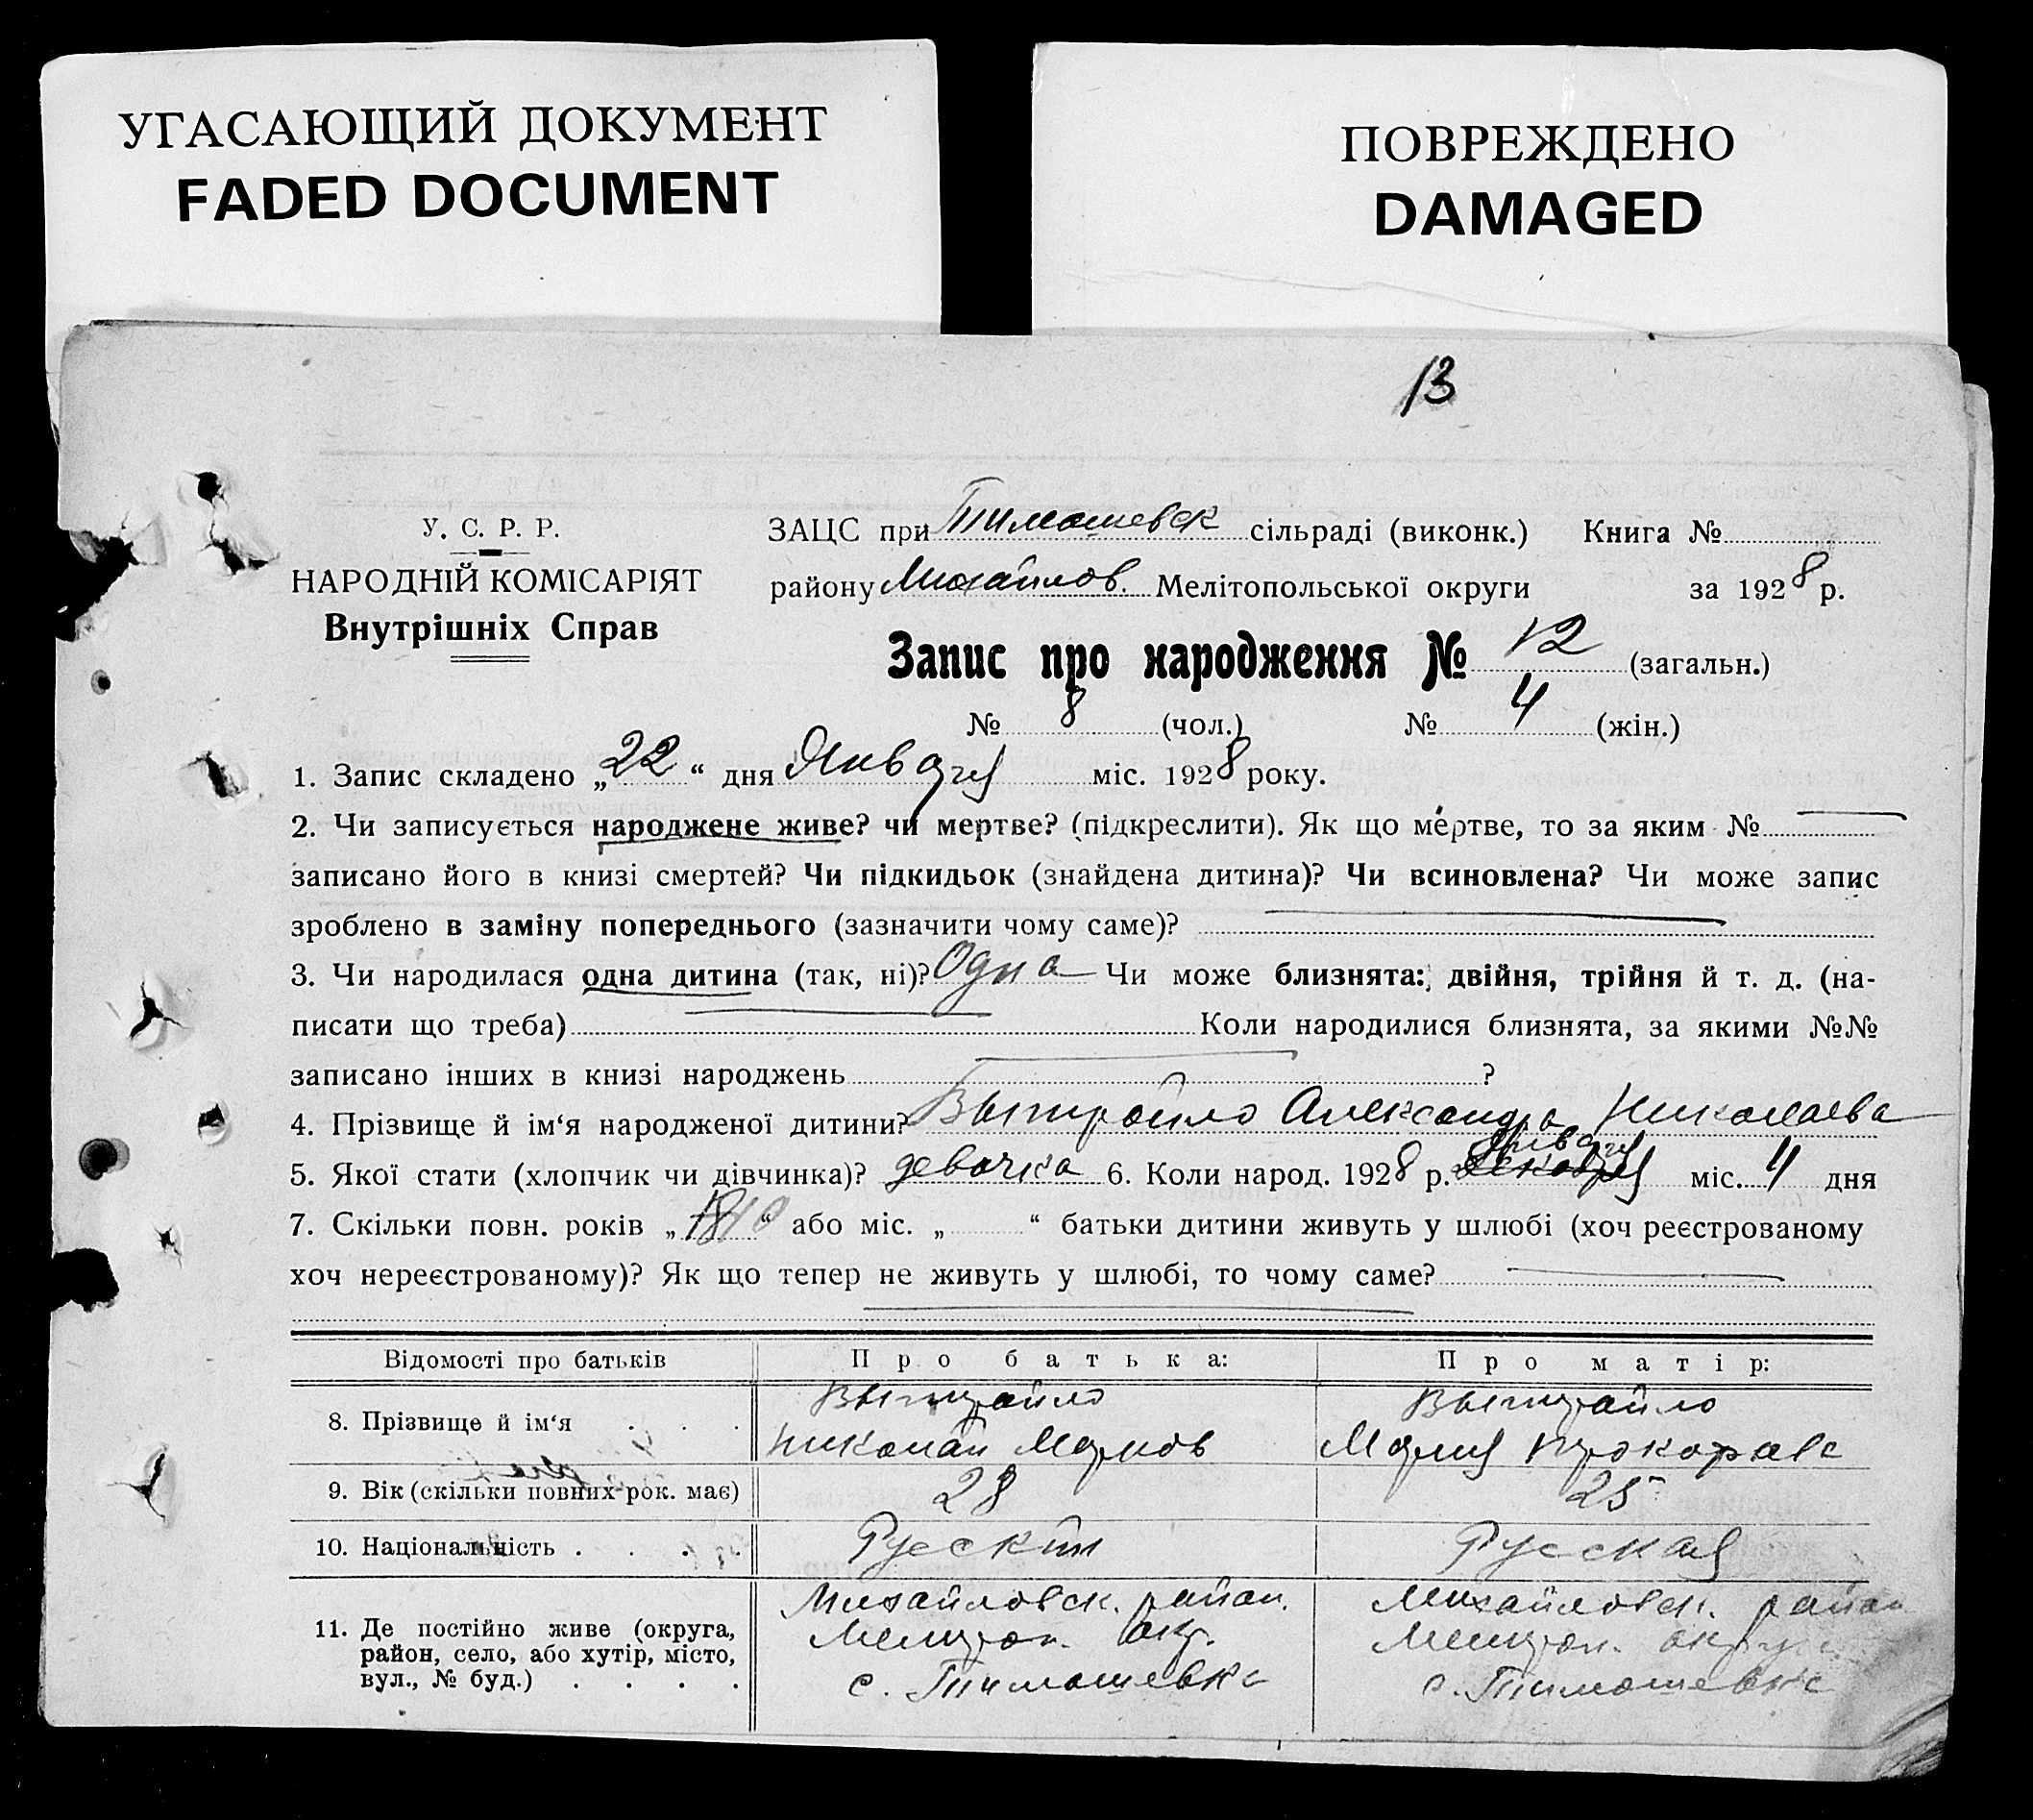 УГАСАЮЩИЙ ДОКУМЕНТ
FADED DOCUMENT
ПОВРЕЖДЕНО
DAMAGED
13
У. С. Р. Р.
НАРОДНІЙ КОМІСАРІЯТ
Внутрішніх Справ
ЗАЦС при Тимошевск сільраді (виконк.) Книга №
району Михайлов. Мелітопольської округи за 1928 р.
Запис про народження № 12 (загальн.)
№ 8 (чол.) № 4 (жін.)
1. Запис складено „22“ дня Января міс. 1928 року.
2. Чи записується народжене живе? чи мертве? (підкреслити). Як що мертве, то за яким №
записано його в книзі смертей? Чи підкидьок (знайдена дитина)? Чи всиновлена? Чи може запис
зроблено в заміну попереднього (зазначити чому саме)?
3. Чи народилася одна дитина (так, ні)? Одна Чи може близнята: двійня, трійня й т. д. (на-
писати що треба) Коли народилися близнята, за якими №№
записано інших в книзі народжень ?
4. Прізвище й ім‘я народженої дитини? Вытрайло Александра Николаева
5. Якої стати (хлопчик чи дівчинка)? девочка 6. Коли народ. 1928 р. Января міс. 4 дня
7. Скільки повн. років „ “ або міс. „ “ батьки дитини живуть у шлюбі (хоч реєстрованому
хоч нереєстрованому)? Як що тепер не живуть у шлюбі, то чому саме?
Відомості про батьків Про батька: Про матір:
8. Прізвище й ім‘я . . . Вытрайло Вытрайло
Николай Марков Мария
9. Вік (скільки повних рок. має) 28 25
10. Національність . . . . Руский Руская
11. Де постійно живе (округа, район, село, або хутір, місто, вул., № буд.) . . . . Михайловск. район. Михайловск. район
Мелитоп. окр. Мелитоп. округ
с. Тимошевка с. Тимошевка